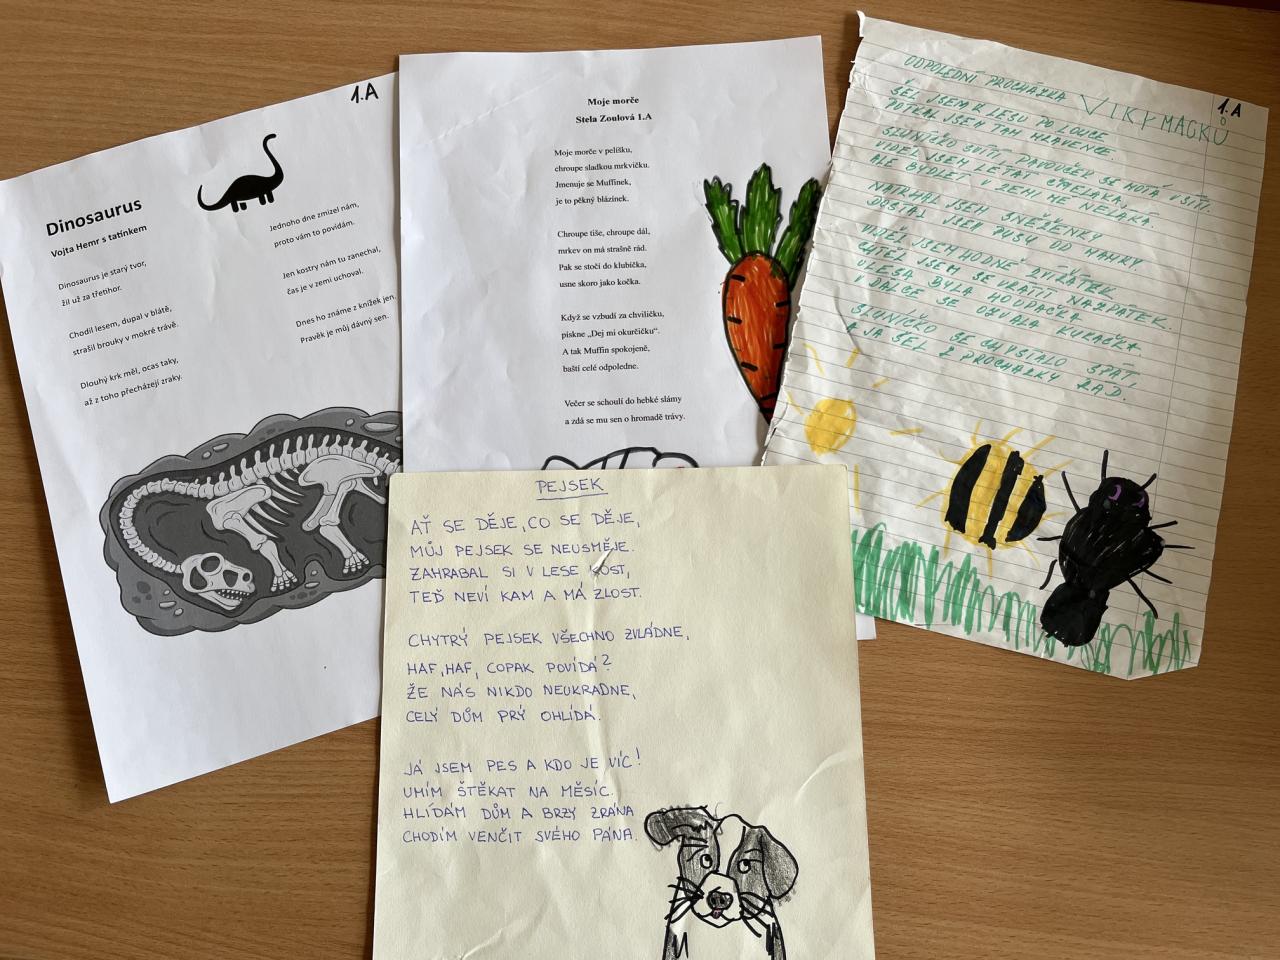 1.A
Dinosaurus
Vojta Hemr s tatínkem
Dinosaurus je starý tvor,
žil už za třetihor.
Chodil lesem, dupal v blátě,
strašil brouky v mokré trávě.
Dlouhý krk měl, ocas taky,
až z toho přecházejí zraky.
Jednoho dne zmizel nám,
proto vám to povídám.
Jen kostry nám tu zanechal,
čas je v zemi uchoval.
Dnes ho známe z knížek jen.
Pravěk je můj dávný sen.
Moje morče
Stela Zoulová 1.A
Moje morče v pelíšku,
chroupe sladkou mrkvičku.
Jmenuje se Muffinek,
je to pěkný blázínek.
Chroupe tiše, chroupe dál,
mrkev on má strašně rád.
Pak se stočí do klubíčka,
usne skoro jako kočka.
Když se vzbudí za chviličku,
pískne „Dej mi okurčičku“.
A tak Muffin spokojeně,
baští celé odpoledne.
Večer se schoulí do hebké slámy
a zdá se mu sen o hromadě trávy.
1.A
ODPOLEDNÍ PROCHÁZKA VIKY MACKŮ
ŠEL JSEM K LESU PO LOUCE
POTKAL JSEM TAM MRAVENCE.
SLUNÍČKO SVÍTÍ, PAVOUČEK SE MOTÁ V SÍTI.
VIDĚL JSEM LÉTAT ČMELÁKA,
ALE BYDLET V ZEMI MĚ NELÁKÁ.
NATRHAL JSEM SNĚŽENKY
DOSTAL JSEM PUSU OD MAMKY.
VIDĚL JSEM HODNĚ ZVÍŘÁTEK
CHTĚL JSEM SE VRÁTIT NAZPÁTEK.
U LESA BYLA HOUPAČKA
V DÁLCE SE OZVALA KUKAČKA.
SLUNÍČKO SE CHYSTALO SPÁT,
A JÁ ŠEL Z PROCHÁZKY RÁD.
PEJSEK
AŤ SE DĚJE, CO SE DĚJE,
MŮJ PEJSEK SE NEUSMĚJE.
ZAHRABAL SI V LESE KOST,
TEĎ NEVÍ KAM A MÁ ZLOST.
CHYTRÝ PEJSEK VŠECHNO ZVLÁDNE,
HAF, HAF, COPAK POVÍDÁ?
ŽE NÁS NIKDO NEUKRADNE,
CELÝ DŮM PRÝ OHLÍDÁ.
JÁ JSEM PES A KDO JE VÍC!
UMÍM ŠTĚKAT NA MĚSÍC.
HLÍDÁM DŮM A BRZY ZRÁNA
CHODÍM VENČIT SVÉHO PÁNA.